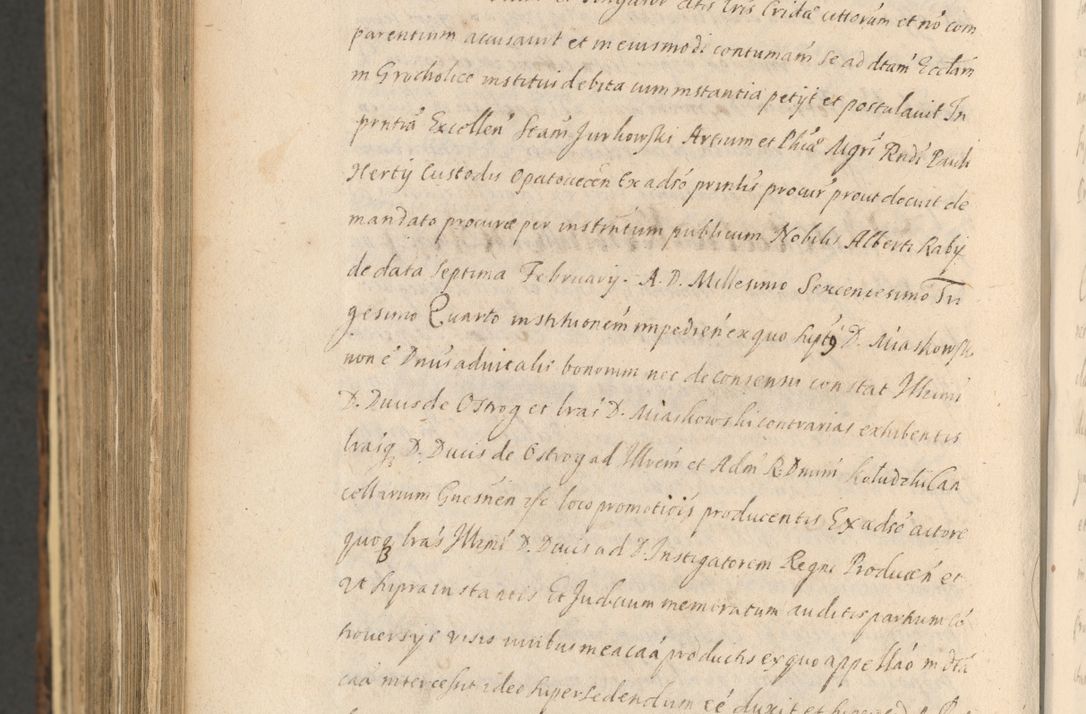 parentium accusavit et in eiusmodi contumam se ad dtam Ecclam
in Grocholice institui debita cum instantia petijt et postulavit In
pntia Excellen Stan Jurkowski Artium et Phia Mgri Rndi Pauli
Hertÿ Custodis Opatovecen Ex adso prinlis procur prout docuit de
mandato procurae per instrutum publicum Nobilis Alberti Rabij
de data Septima February A. D. Millesimo Sexcentesimo Tri
gesimo Quarto institutionem impedien ex quo D. Miaskowski
non e Dnus advitalis bonorum nec de consensu constat Illmi
D. Ducis de Ostrog et lras D. Miaskowski contrarias exhibentis
lrasq D. Ducis de Ostrog ad Illrem et Adm R. Dnum Koludzki Can
cellarium Gnesnen loco promotiois producentis Ex adso actore
quoq lras Illmi D. Ducis ad D. Instigatorem Regni Producen et
Ut supra instantis Et Judicium memoratum auditis partium co
troversijs visis iuribus in ea caa productis ex quo appellao in dta
caa intercessit ideo supersedendum ee duxit et